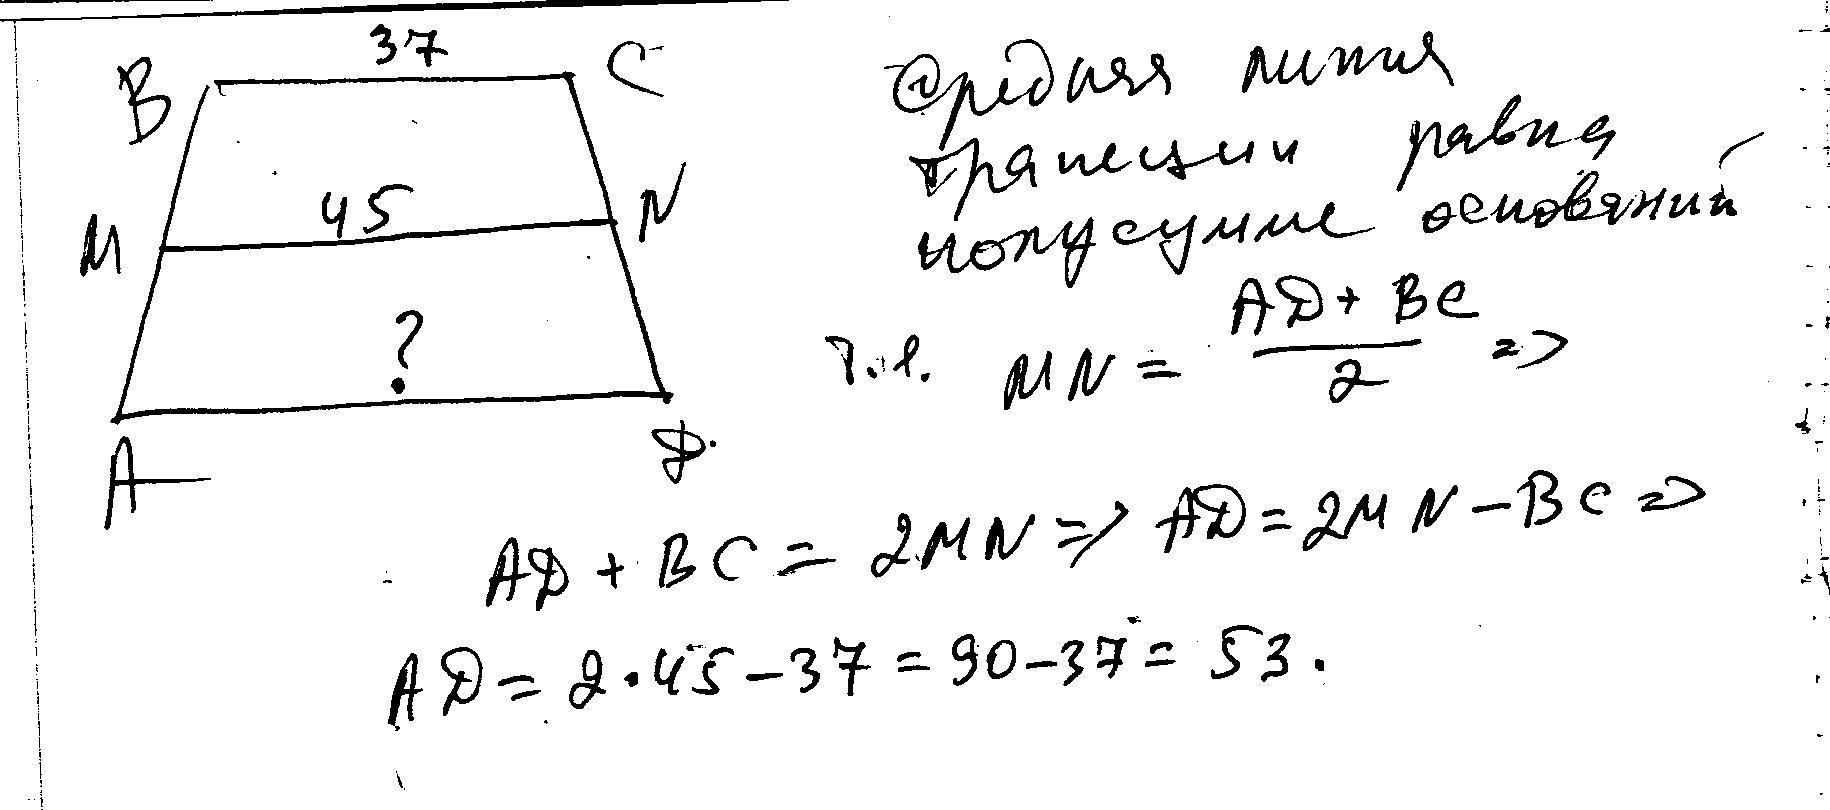 37
B C
Средняя линия
трапеции равна
полусумме оснований
45
M N
?
A D
т.е. MN = (AD + BC)/2 =>
AD + BC = 2MN => AD = 2MN - BC =>
AD = 2·45 - 37 = 90 - 37 = 53.